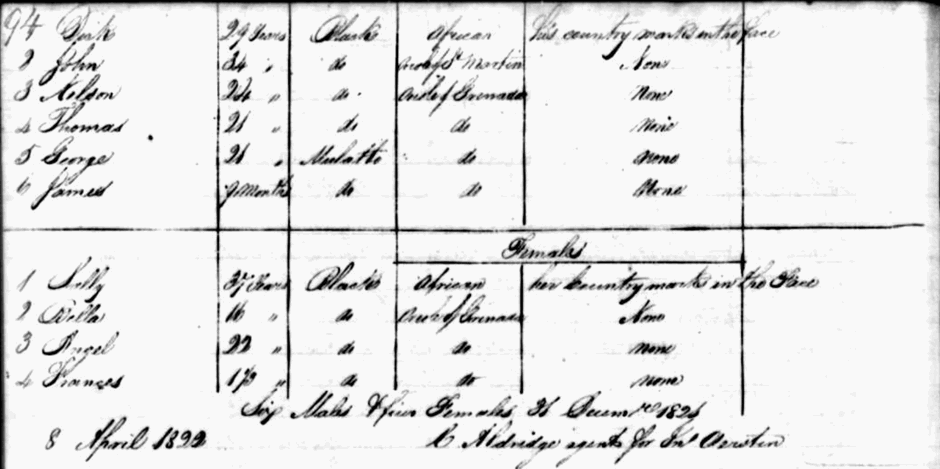 94 Dirk 29 Years Black African his country marks in the face
2 John 34 " do Creole of St Martin None
3 Nelson 24 " do Creole of Grenada None
4 Thomas 21 " do do None
5 George 21 " Mulatto do none
6 James 9 Months do do None
Females
1 37 Years Black African her Country marks in the Face
2 Bella 16 " do Creole of Grenada None
3 Angel 22 " do do none
4 Frances " do do none
Six Males & four Females, 31 Decembre 1821
8 April 1822 Aldridge agents for Jno